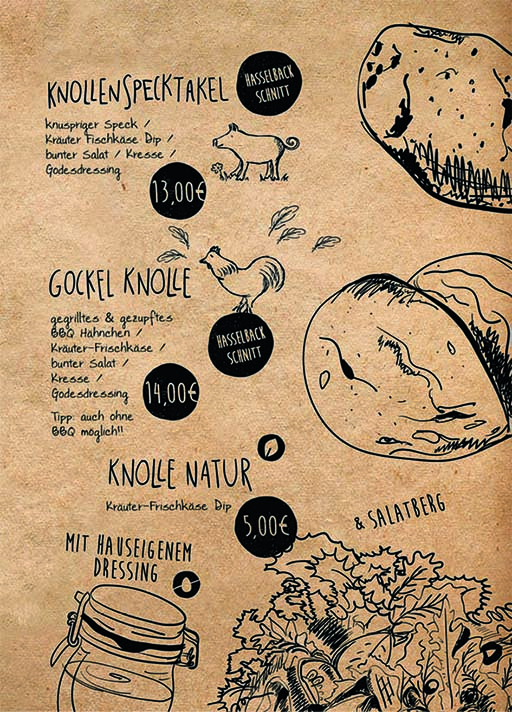 KNOLLENSPECKTAKEL
HASSELBACK
SCHNITT
knuspriger Speck /
Kräuter Fischkäse Dip /
bunter Salat / Kresse /
Godesdressing
13,00€
GOCKEL KNOLLE
gegrilltes & gezupftes
BBQ Hähnchen /
Kräuter-Frischkäse /
bunter Salat /
Kresse /
Godesdressing
HASSELBACK
SCHNITT
14,00€
Tipp: auch ohne
BBQ möglich!!
KNOLLE NATUR
Kräuter-Frischkäse Dip
5,00€
& SALATBERG
MIT HAUSEIGENEM
DRESSING